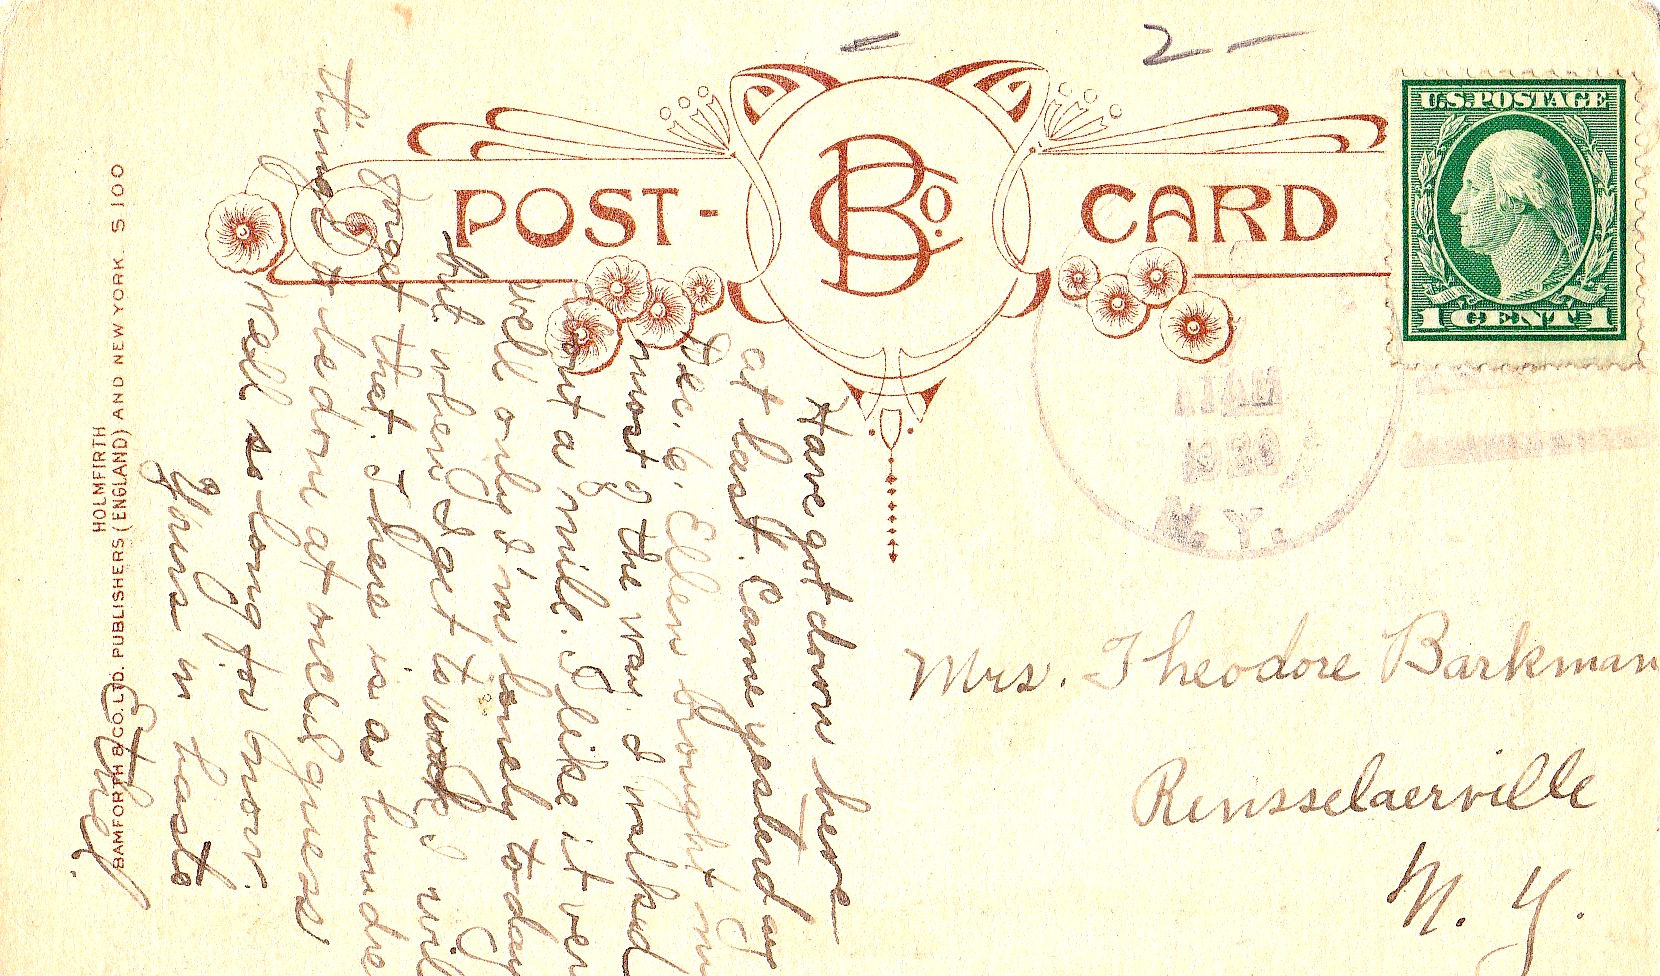 2 -
U.S. POSTAGE
1 CENT 1
POST-
B Co.
CARD
N. Y.
Mrs. Theodore Barkman
Rensselaerville
N. Y.
Have got down here
at last. Came yesterday
Dec. 6. Ellen brought m
most of the way. I walked
out a mile. I like it ver
well only I'm lonely to-day
but when I get to work I will
forget that. There is a hundre
things to be done at once I guess
Well so-long for now.
Yours in haste
Ethel.
HOLMFIRTH
BAMFORTH & CO. LTD. PUBLISHERS (ENGLAND) AND NEW YORK. S 100